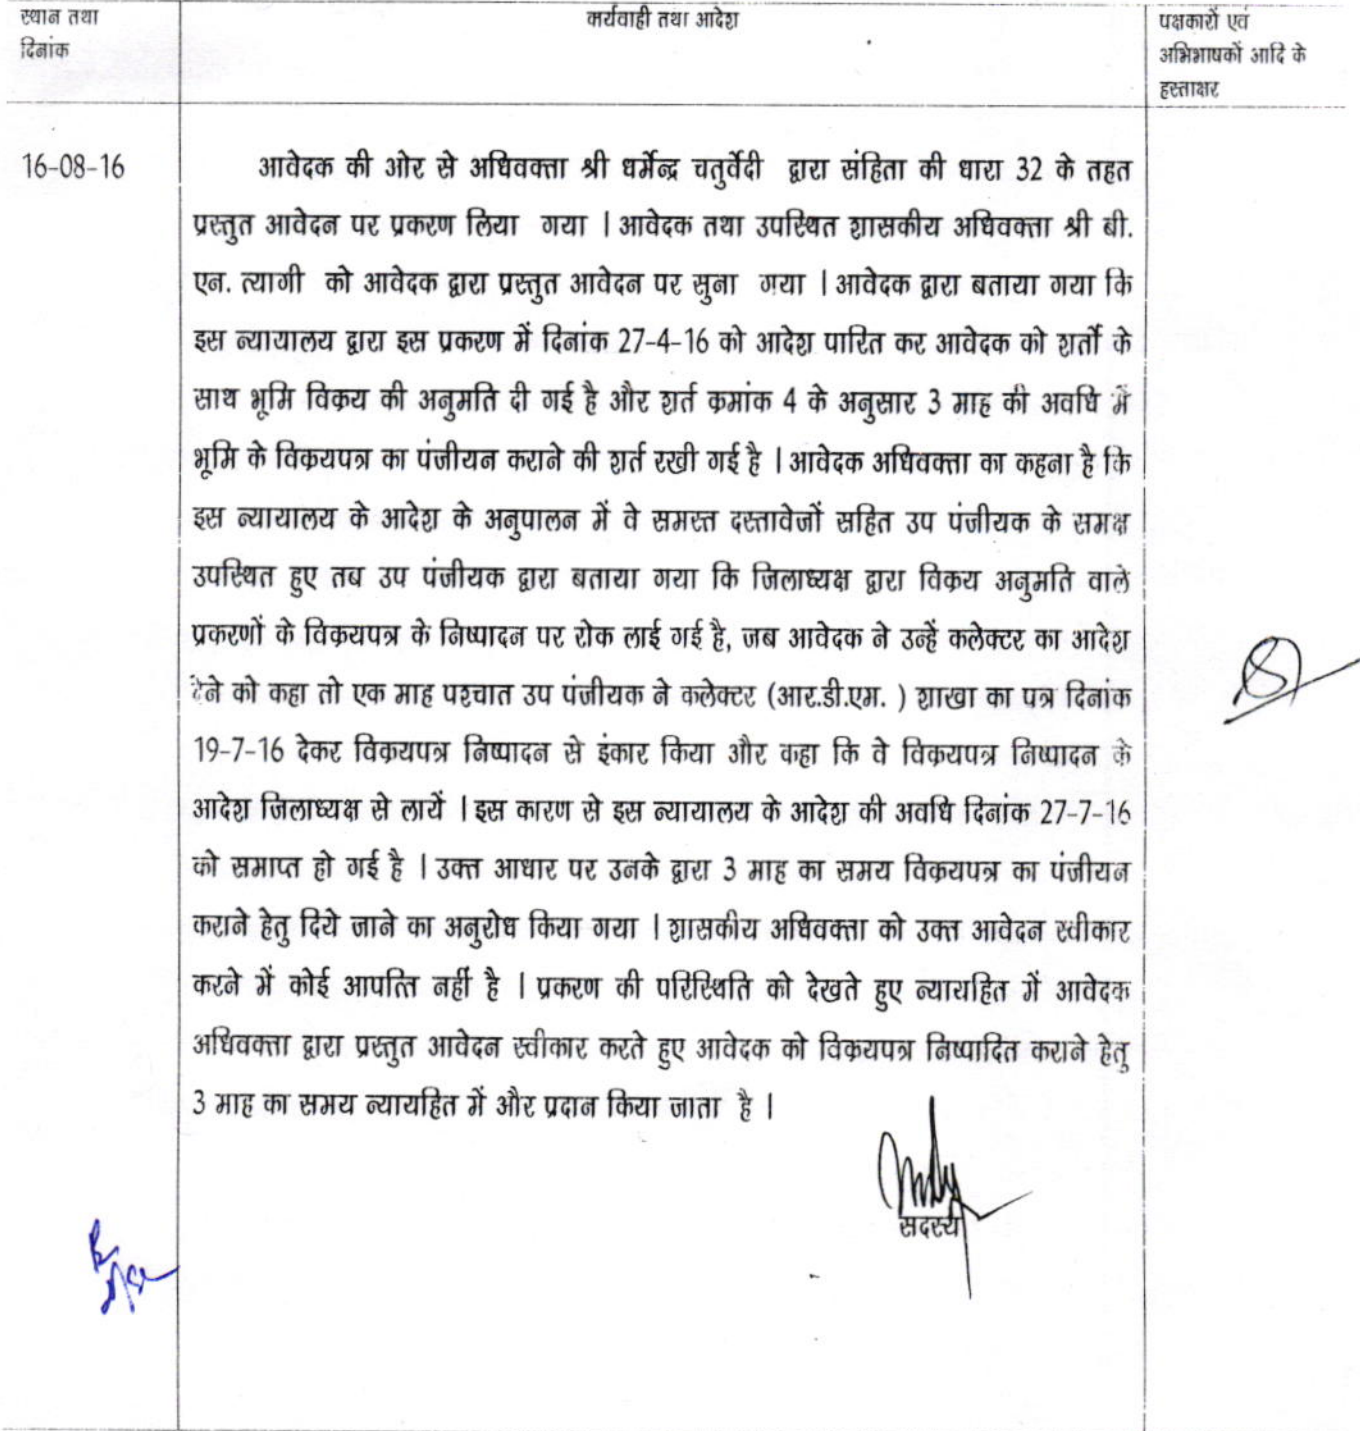 स्थान तथा
दिनांक
कार्यवाही तथा आदेश
पक्षकारों एवं
अभिभाषकों आदि के
हस्ताक्षर
16-08-16
आवेदक की ओर से अधिवक्ता श्री धर्मेन्द्र चतुर्वेदी द्वारा संहिता की धारा 32 के तहत
प्रस्तुत आवेदन पर प्रकरण लिया गया । आवेदक तथा उपस्थित शासकीय अधिवक्ता श्री बी.
एन. त्यागी को आवेदक द्वारा प्रस्तुत आवेदन पर सुना गया । आवेदक द्वारा बताया गया कि
इस न्यायालय द्वारा इस प्रकरण में दिनांक 27-4-16 को आदेश पारित कर आवेदक को शर्तो के
साथ भूमि विक्रय की अनुमति दी गई है और शर्त क्रमांक 4 के अनुसार 3 माह की अवधि में
भूमि के विक्रयपत्र का पंजीयन कराने की शर्त रखी गई है । आवेदक अधिवक्ता का कहना है कि
इस न्यायालय के आदेश के अनुपालन में वे समस्त दस्तावेजों सहित उप पंजीयक के समक्ष
उपस्थित हुए तब उप पंजीयक द्वारा बताया गया कि जिलाध्यक्ष द्वारा विक्रय अनुमति वाले
प्रकरणों के विक्रयपत्र के निष्पादन पर रोक लाई गई है, जब आवेदक ने उन्हें कलेक्टर का आदेश
देने को कहा तो एक माह पश्चात उप पंजीयक ने कलेक्टर (आर.डी.एम. ) शाखा का पत्र दिनांक
19-7-16 देकर विक्रयपत्र निष्पादन से इंकार किया और कहा कि वे विक्रयपत्र निष्पादन के
आदेश जिलाध्यक्ष से लायें । इस कारण से इस न्यायालय के आदेश की अवधि दिनांक 27-7-16
को समाप्त हो गई है । उक्त आधार पर उनके द्वारा 3 माह का समय विक्रयपत्र का पंजीयन
कराने हेतु दिये जाने का अनुरोध किया गया । शासकीय अधिवक्ता को उक्त आवेदन स्वीकार
करने में कोई आपत्ति नहीं है । प्रकरण की परिस्थिति को देखते हुए न्यायहित में आवेदक
अधिवक्ता द्वारा प्रस्तुत आवेदन स्वीकार करते हुए आवेदक को विक्रयपत्र निष्पादित कराने हेतु
3 माह का समय न्यायहित में और प्रदान किया जाता है ।
सदस्य